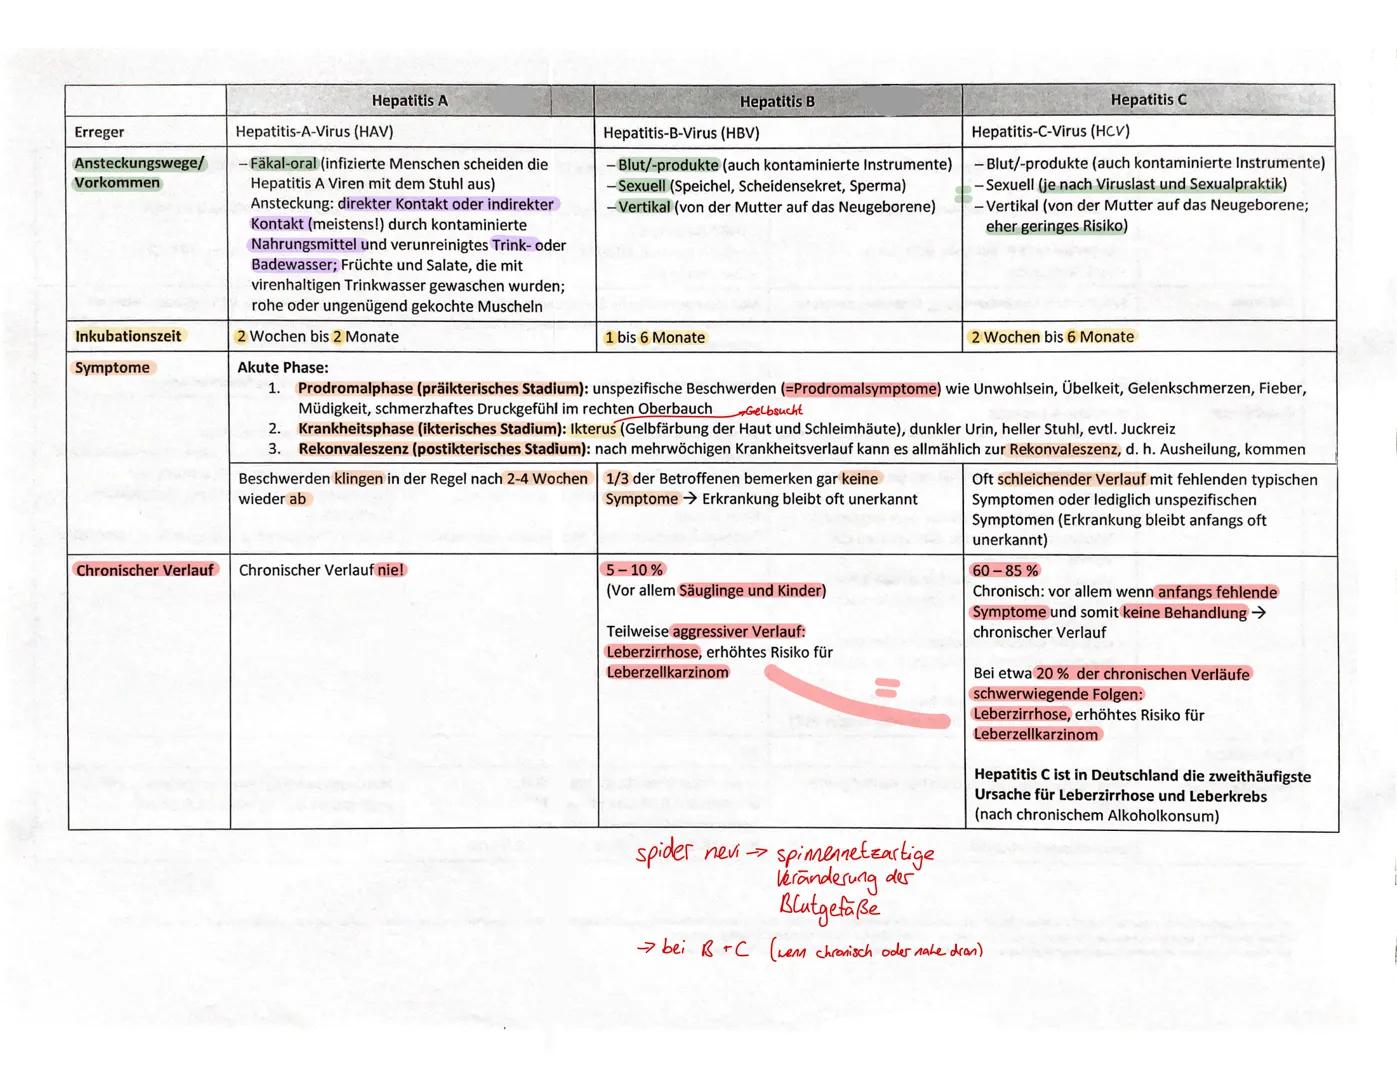 Hepatitis A Hepatitis B Hepatitis C
Erreger Hepatitis-A-Virus (HAV) Hepatitis-B-Virus (HBV) Hepatitis-C-Virus (HCV)
Ansteckungswege/
Vorkommen
– Fäkal-oral (infizierte Menschen scheiden die
Hepatitis A Viren mit dem Stuhl aus)
Ansteckung: direkter Kontakt oder indirekter
Kontakt (meistens!) durch kontaminierte
Nahrungsmittel und verunreinigtes Trink- oder
Badewasser; Früchte und Salate, die mit
virenhaltigen Trinkwasser gewaschen wurden;
rohe oder ungenügend gekochte Muscheln
– Blut/-produkte (auch kontaminierte Instrumente)
– Sexuell (Speichel, Scheidensekret, Sperma)
– Vertikal (von der Mutter auf das Neugeborene)
=
– Blut/-produkte (auch kontaminierte Instrumente)
– Sexuell (je nach Viruslast und Sexualpraktik)
– Vertikal (von der Mutter auf das Neugeborene;
eher geringes Risiko)
Inkubationszeit 2 Wochen bis 2 Monate 1 bis 6 Monate 2 Wochen bis 6 Monate
Symptome
Akute Phase:
1. Prodromalphase (präikterisches Stadium): unspezifische Beschwerden (=Prodromalsymptome) wie Unwohlsein, Übelkeit, Gelenkschmerzen, Fieber,
Müdigkeit, schmerzhaftes Druckgefühl im rechten Oberbauch
→Gelbsucht
2. Krankheitsphase (ikterisches Stadium): Ikterus (Gelbfärbung der Haut und Schleimhäute), dunkler Urin, heller Stuhl, evtl. Juckreiz
3. Rekonvaleszenz (postikterisches Stadium): nach mehrwöchigen Krankheitsverlauf kann es allmählich zur Rekonvaleszenz, d. h. Ausheilung, kommen
Beschwerden klingen in der Regel nach 2-4 Wochen
wieder ab
1/3 der Betroffenen bemerken gar keine
Symptome → Erkrankung bleibt oft unerkannt
Oft schleichender Verlauf mit fehlenden typischen
Symptomen oder lediglich unspezifischen
Symptomen (Erkrankung bleibt anfangs oft
unerkannt)
Chronischer Verlauf
Chronischer Verlauf nie!
5 – 10 %
(Vor allem Säuglinge und Kinder)
Teilweise aggressiver Verlauf:
Leberzirrhose, erhöhtes Risiko für
Leberzellkarzinom
=
60 – 85 %
Chronisch: vor allem wenn anfangs fehlende
Symptome und somit keine Behandlung →
chronischer Verlauf
Bei etwa 20 % der chronischen Verläufe
schwerwiegende Folgen:
Leberzirrhose, erhöhtes Risiko für
Leberzellkarzinom
Hepatitis C ist in Deutschland die zweithäufigste
Ursache für Leberzirrhose und Leberkrebs
(nach chronischem Alkoholkonsum)
spider nevi → spinnennetzartige
Veränderung der
Blutgefäße
→ bei B + C (wenn chronisch oder nahe dran)